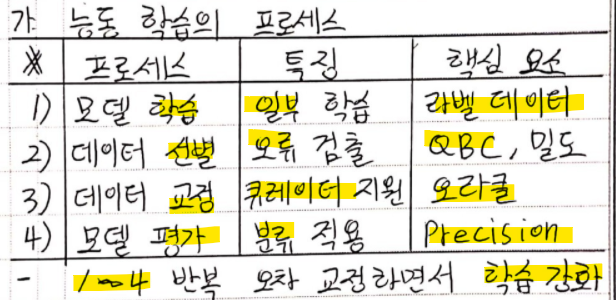 가. 능동 학습의 프로세스
※ 프로세스 특징 핵심 요소
1) 모델 학습 일부 학습 라벨 데이터
2) 데이터 선별 오류 검출 QBC, 밀도
3) 데이터 교정 큐레이터 지원 오라클
4) 모델 평가 분류 적용 Precision
- 1~4 반복 오차 교정하면서 학습 강화